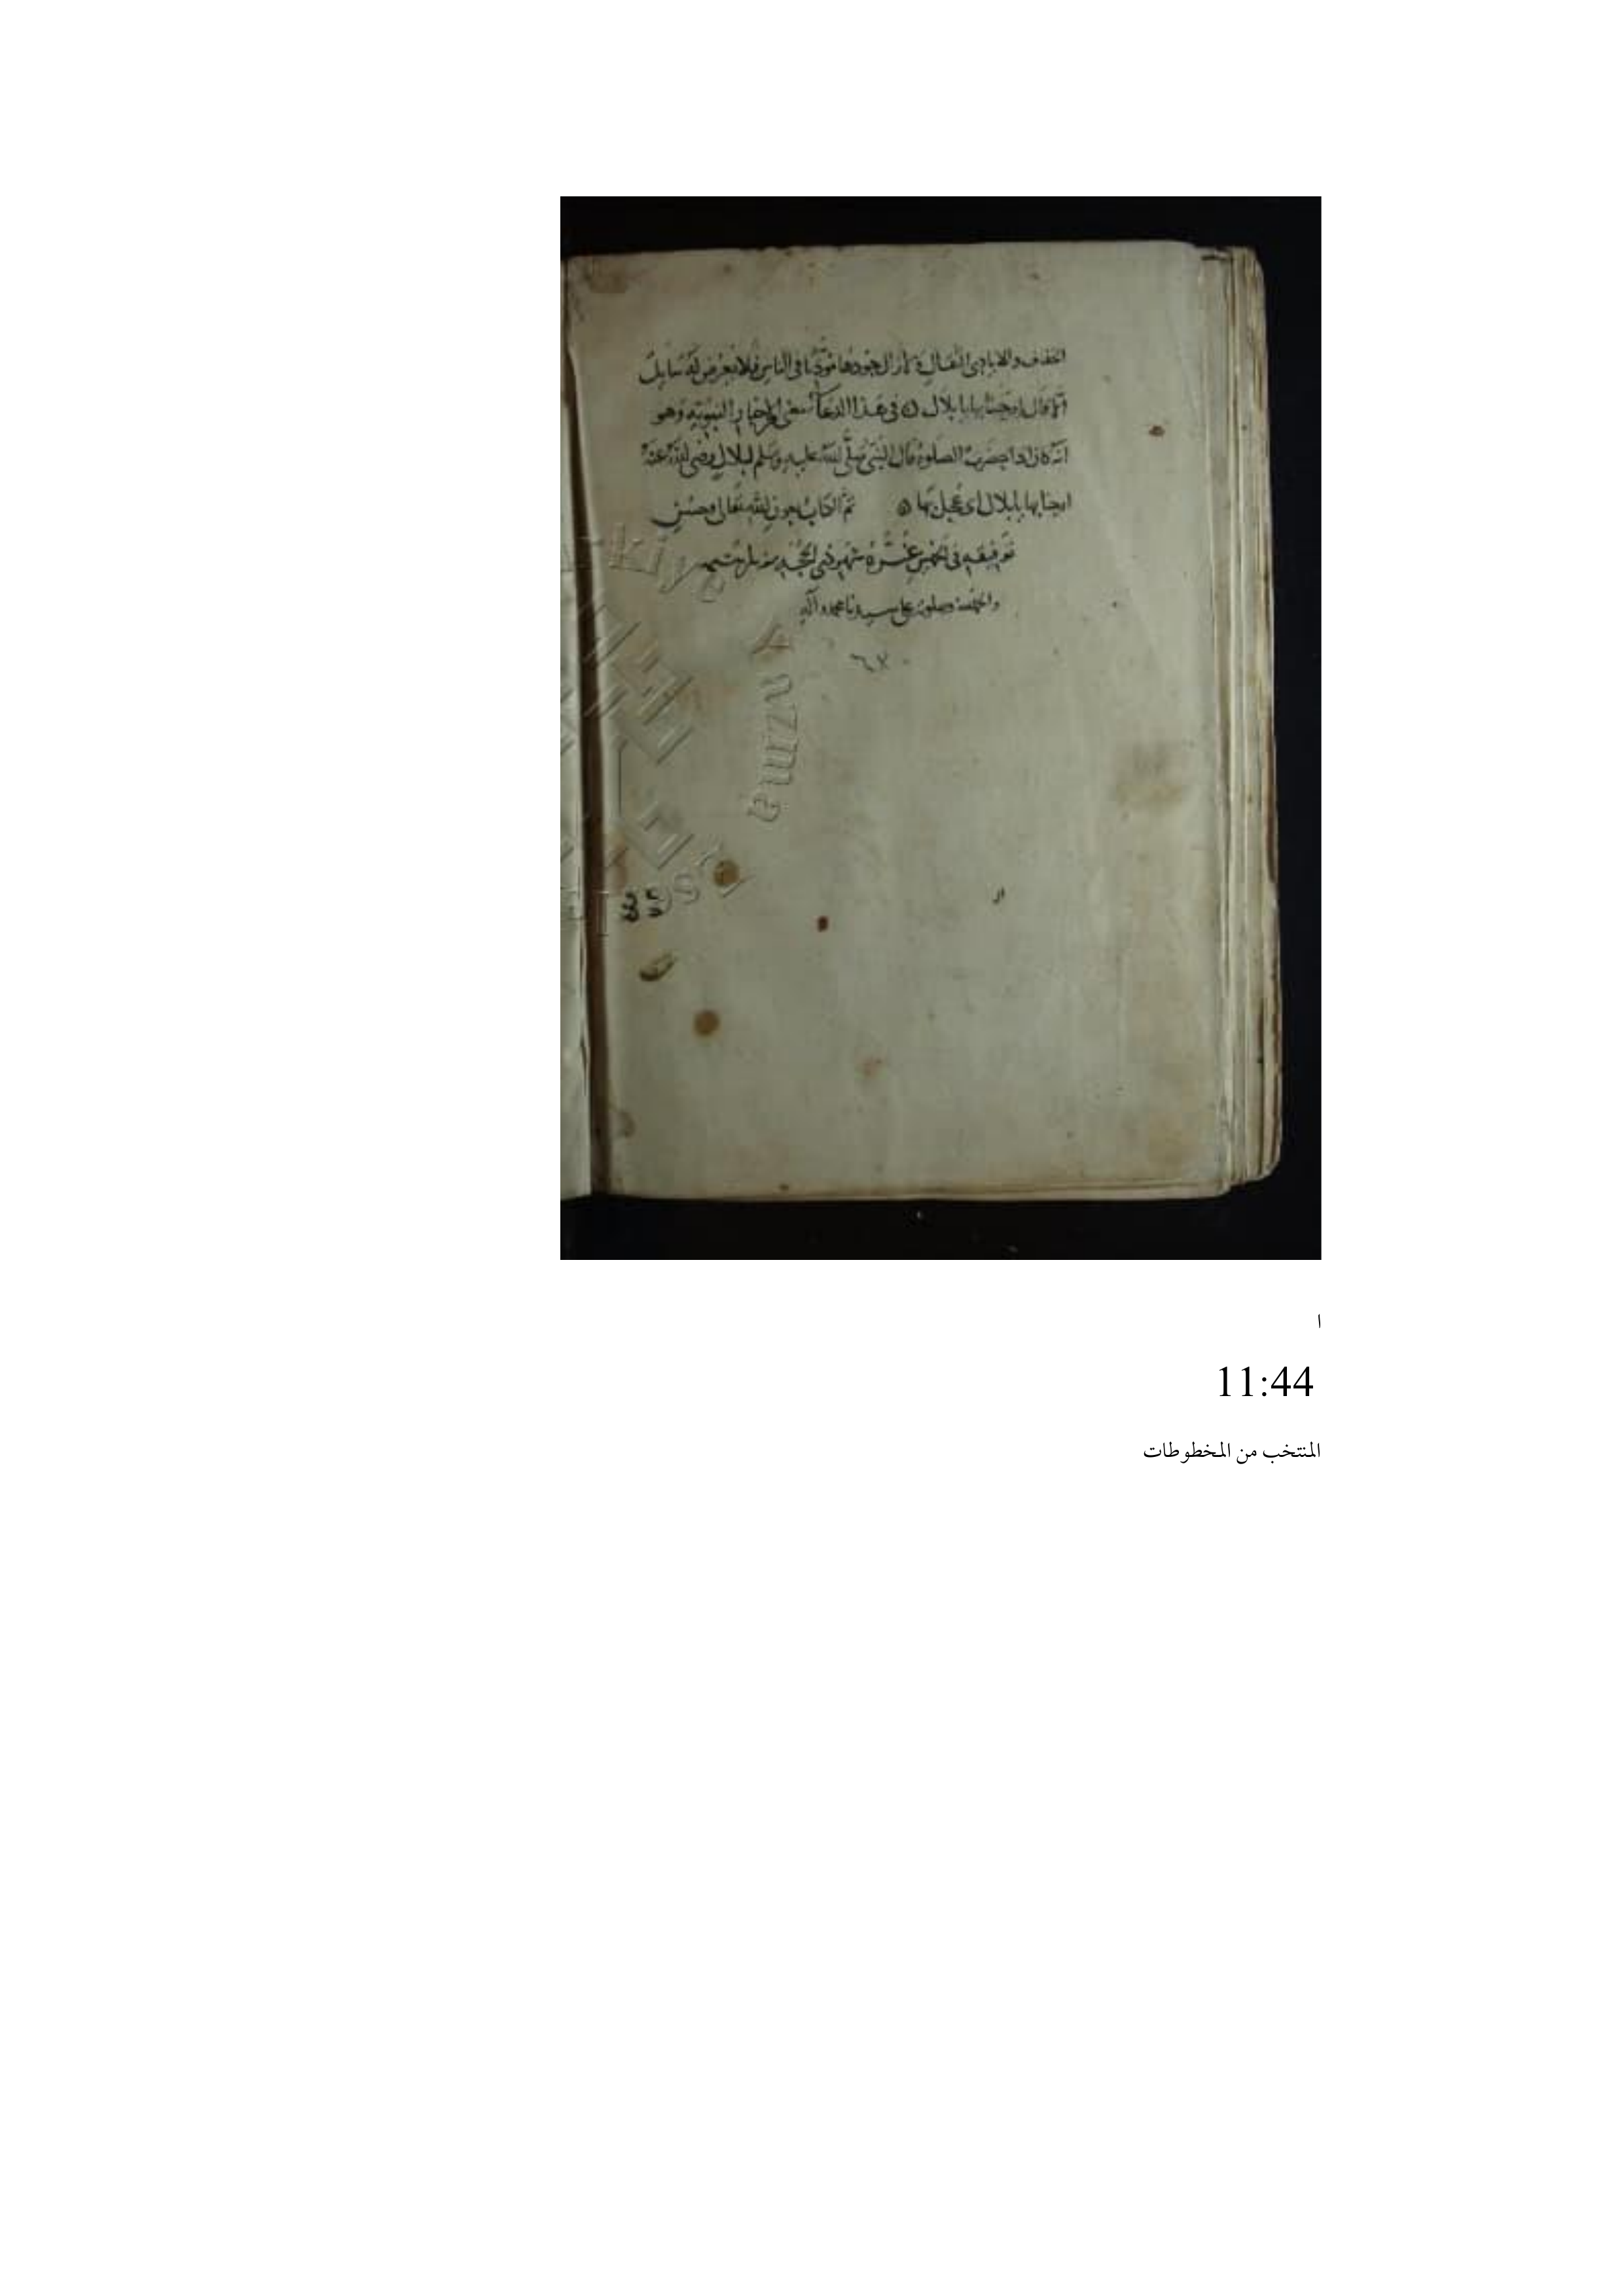 الخفاف والايادي الثقال ۵ لازال جودها مؤذنا في الناس فلا يعرض له سايل
الا قال ارحنا بها يا بلال ۵ في هذا الدعا معنى الاخبار النبويه وهو
انه كان اذا حضرت الصلوة قال النبي صلى الله عليه وسلم لبلال رضى الله عنه
ارحنا بها يا بلال اى عجل بها ۵ تم الكتاب بعون الله تعالى وحسن
توفيقه في شهر ذي الحجه
وصلوته على سيدنا محمد وآله
35
ا
11:44
المنتخب من المخطوطات